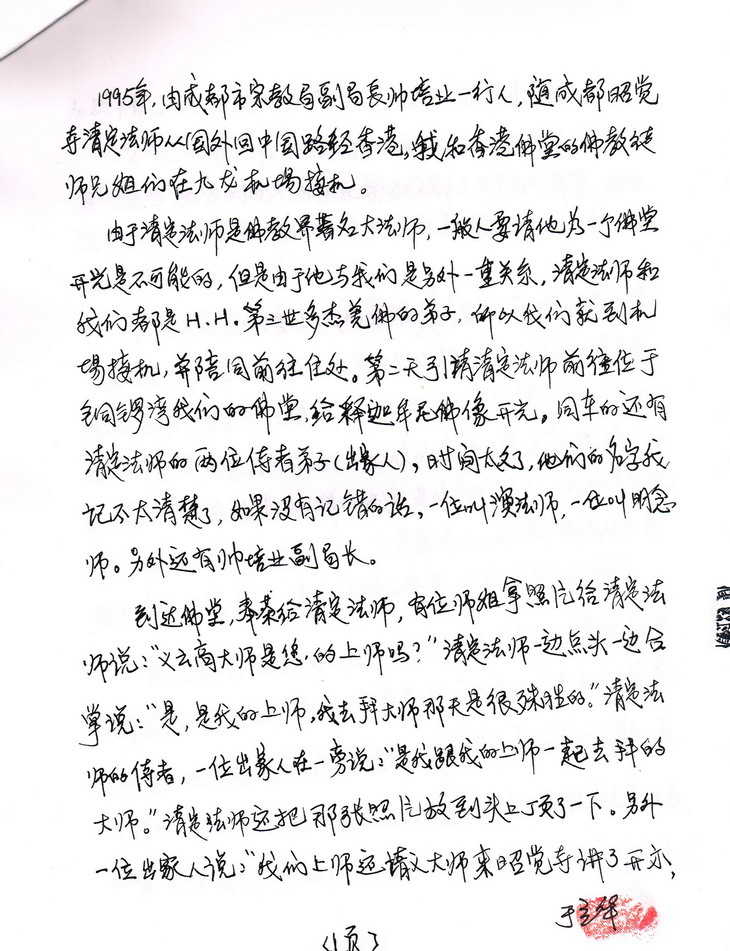 1995年,由成都市宗教局副局長帅培业一行人,随成都昭觉
寺清定法师从国外回中国路经香港,我和香港佛堂的佛教徒
师兄姐们在九龙机場接机。
由于清定法师是佛教界著名大法师,一般人要请他为一个佛堂
开光是不可能的,但是由于他与我们是另外一重关系,清定法师和
我们都是H.H.第三世多杰羌佛的弟子,所以我们就到机
場接机,并陪同前往住处。第二天引请清定法师前往位于
铜锣湾我们的佛堂,给释迦牟尼佛像开光。同车的还有
清定法师的两位侍者弟子(出家人),时间太久了,他们的名字我
记不太清楚了,如果没有记错的话,一位叫演法师,一位叫明念
师。另外还有帅培业副局长。
到达佛堂,奉茶给清定法师,有位师姐拿照片给清定法
师说:"义云高大师是您的上师吗?"清定法师一边点头一边合
掌说:"是,是我的上师,我去拜大师那天是很殊胜的。"清定法
师的侍者,一位出家人在一旁说:"是我跟我的上师一起去拜的
大师。"清定法师还把那张照片放到头上顶了一下。另外
一位出家人说:"我们上师还请义大师来昭觉寺讲了开示,
于立华
(1页)